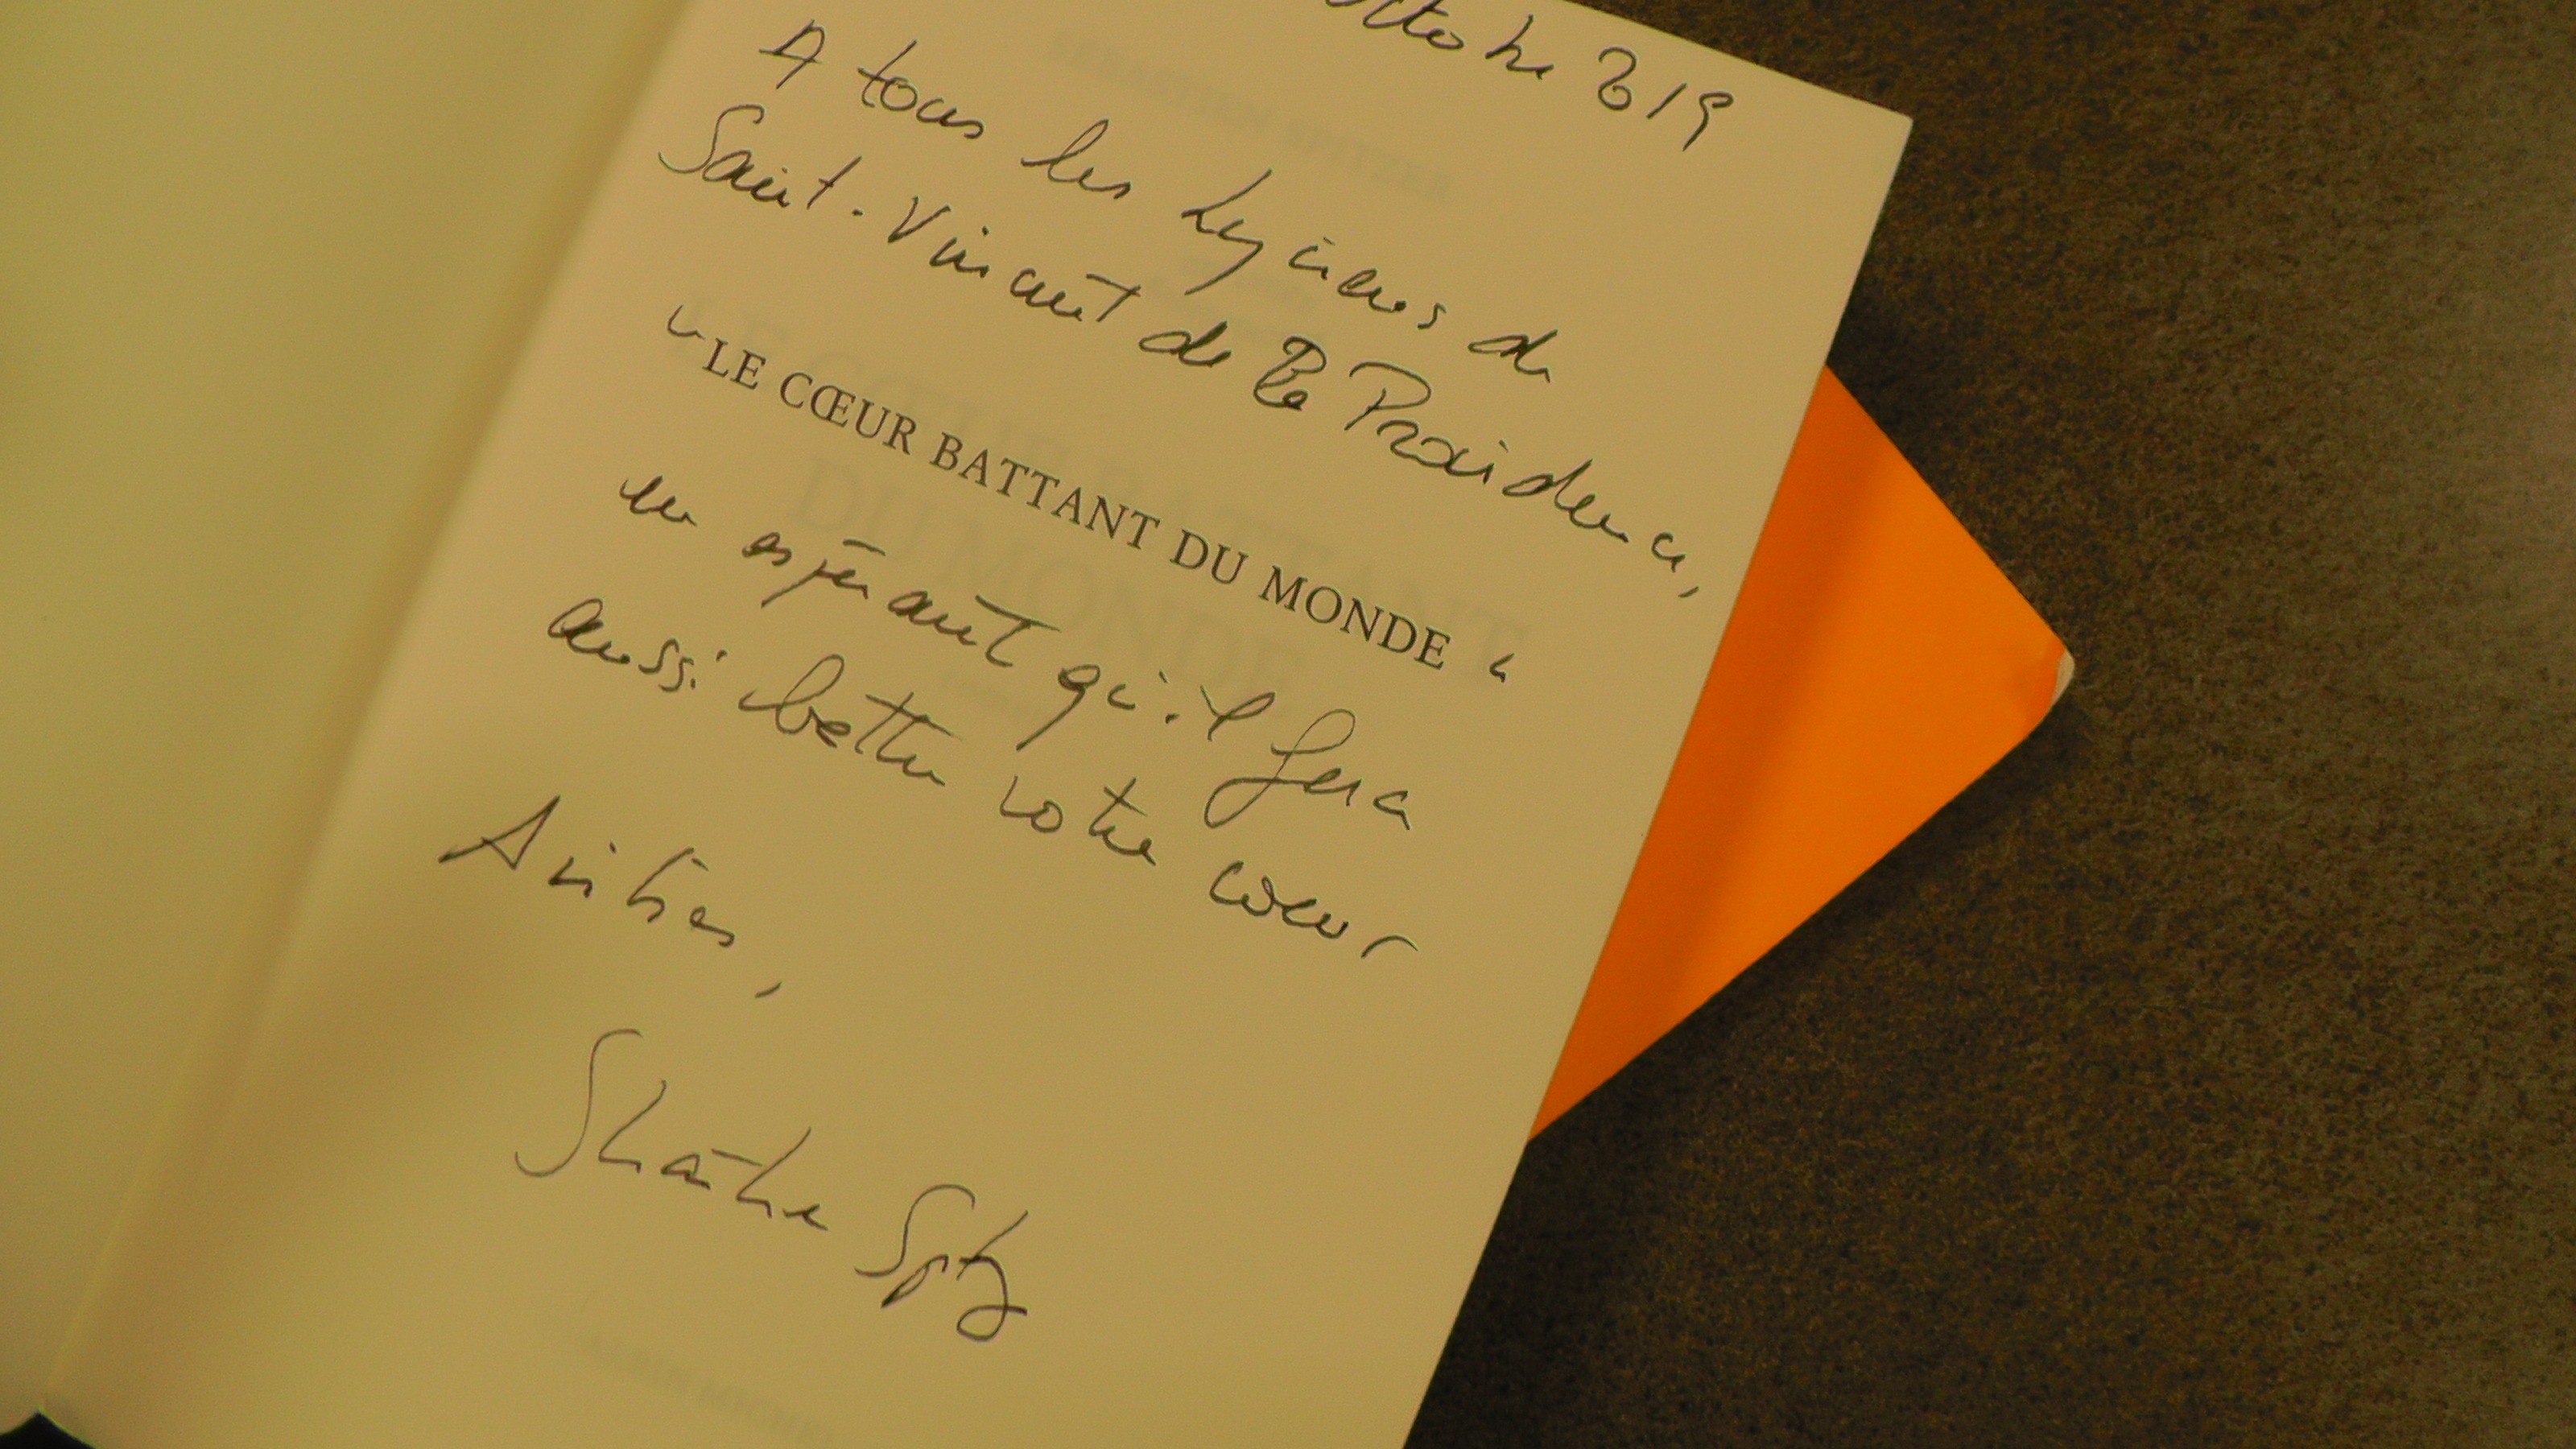 octobre 2019
A tous les Lycéens de
Saint-Vincent de La Providence,
"LE CŒUR BATTANT DU MONDE"
en espérant qu'il fera
aussi battre votre cœur
Amitiés,